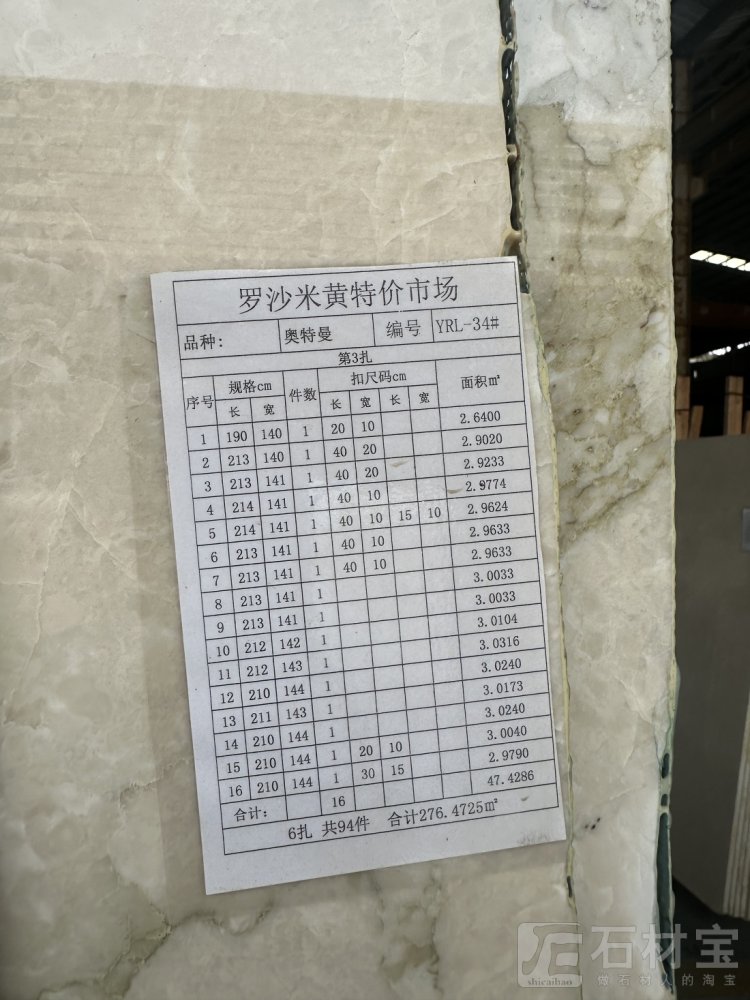 罗沙米黄特价市场
品种: 奥特曼 编号 YRL-34#
第3扎
序号 规格cm 件数 扣尺码cm 面积㎡
长 宽 长 宽 长 宽
1 190 140 1 20 10 2.6400
2 213 140 1 40 20 2.9020
3 213 141 1 40 20 2.9233
4 214 141 1 40 10 2.9774
5 214 141 1 40 10 15 10 2.9624
6 213 141 1 40 10 2.9633
7 213 141 1 40 10 2.9633
8 213 141 1 3.0033
9 213 141 1 3.0033
10 212 142 1 3.0104
11 212 143 1 3.0316
12 210 144 1 3.0240
13 211 143 1 3.0173
14 210 144 1 3.0240
15 210 144 1 20 10 3.0040
16 210 144 1 30 15 2.9790
合计: 16 47.4286
6扎 共94件 合计276.4725㎡
石材宝
shicaibao 做石材人的淘宝